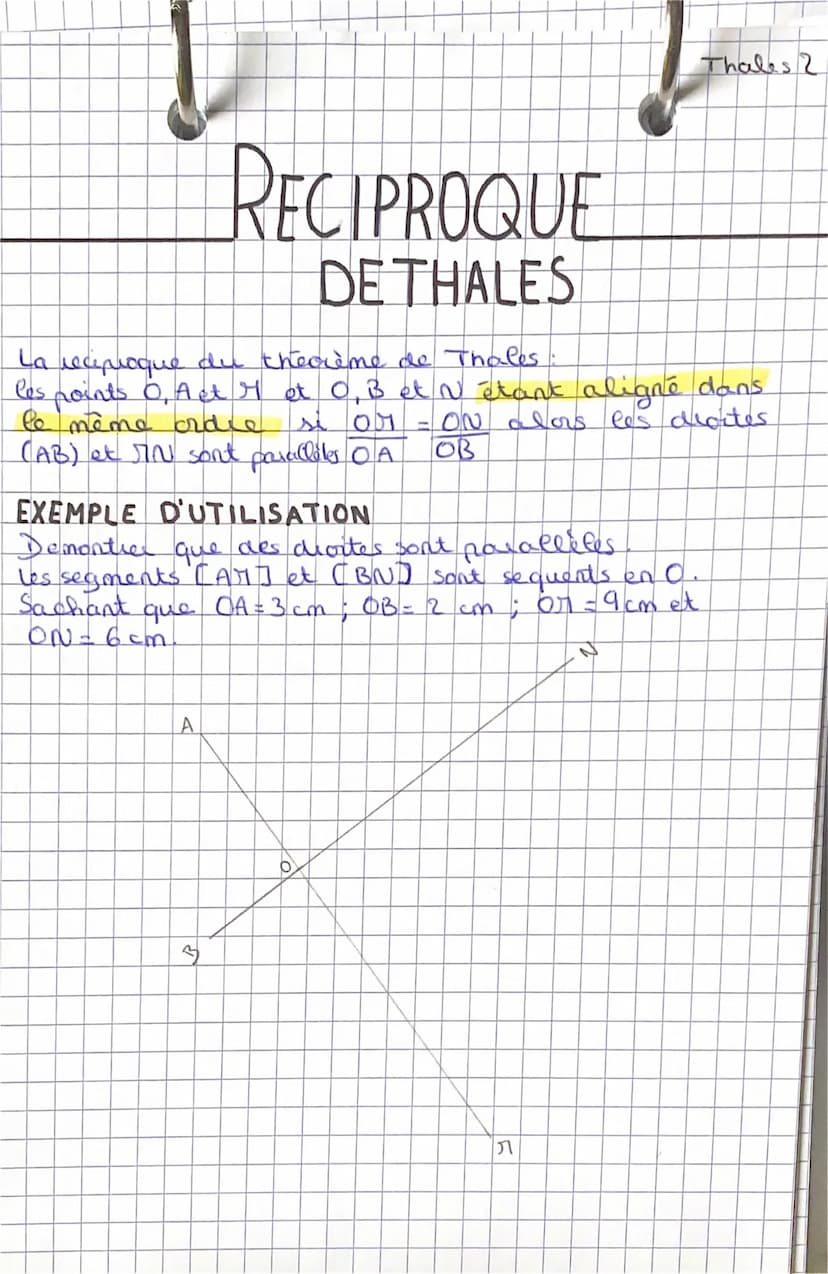 Thales 2
RECIPROQUE
DE THALES
La reciproque du théorème de Thales :
les points O, A et M et O, B et N étant aligné dans
le même ordre si OM/OA = ON/OB alors les droites
(AB) et MN sont parallèles
EXEMPLE D'UTILISATION
Demontrer que des droites sont parallèles.
Les segments [AM] et [BN] sont sequents en O.
Sachant que OA = 3 cm ; OB = 2 cm ; OM = 9 cm et
ON = 6 cm.
N
A
O
B
M